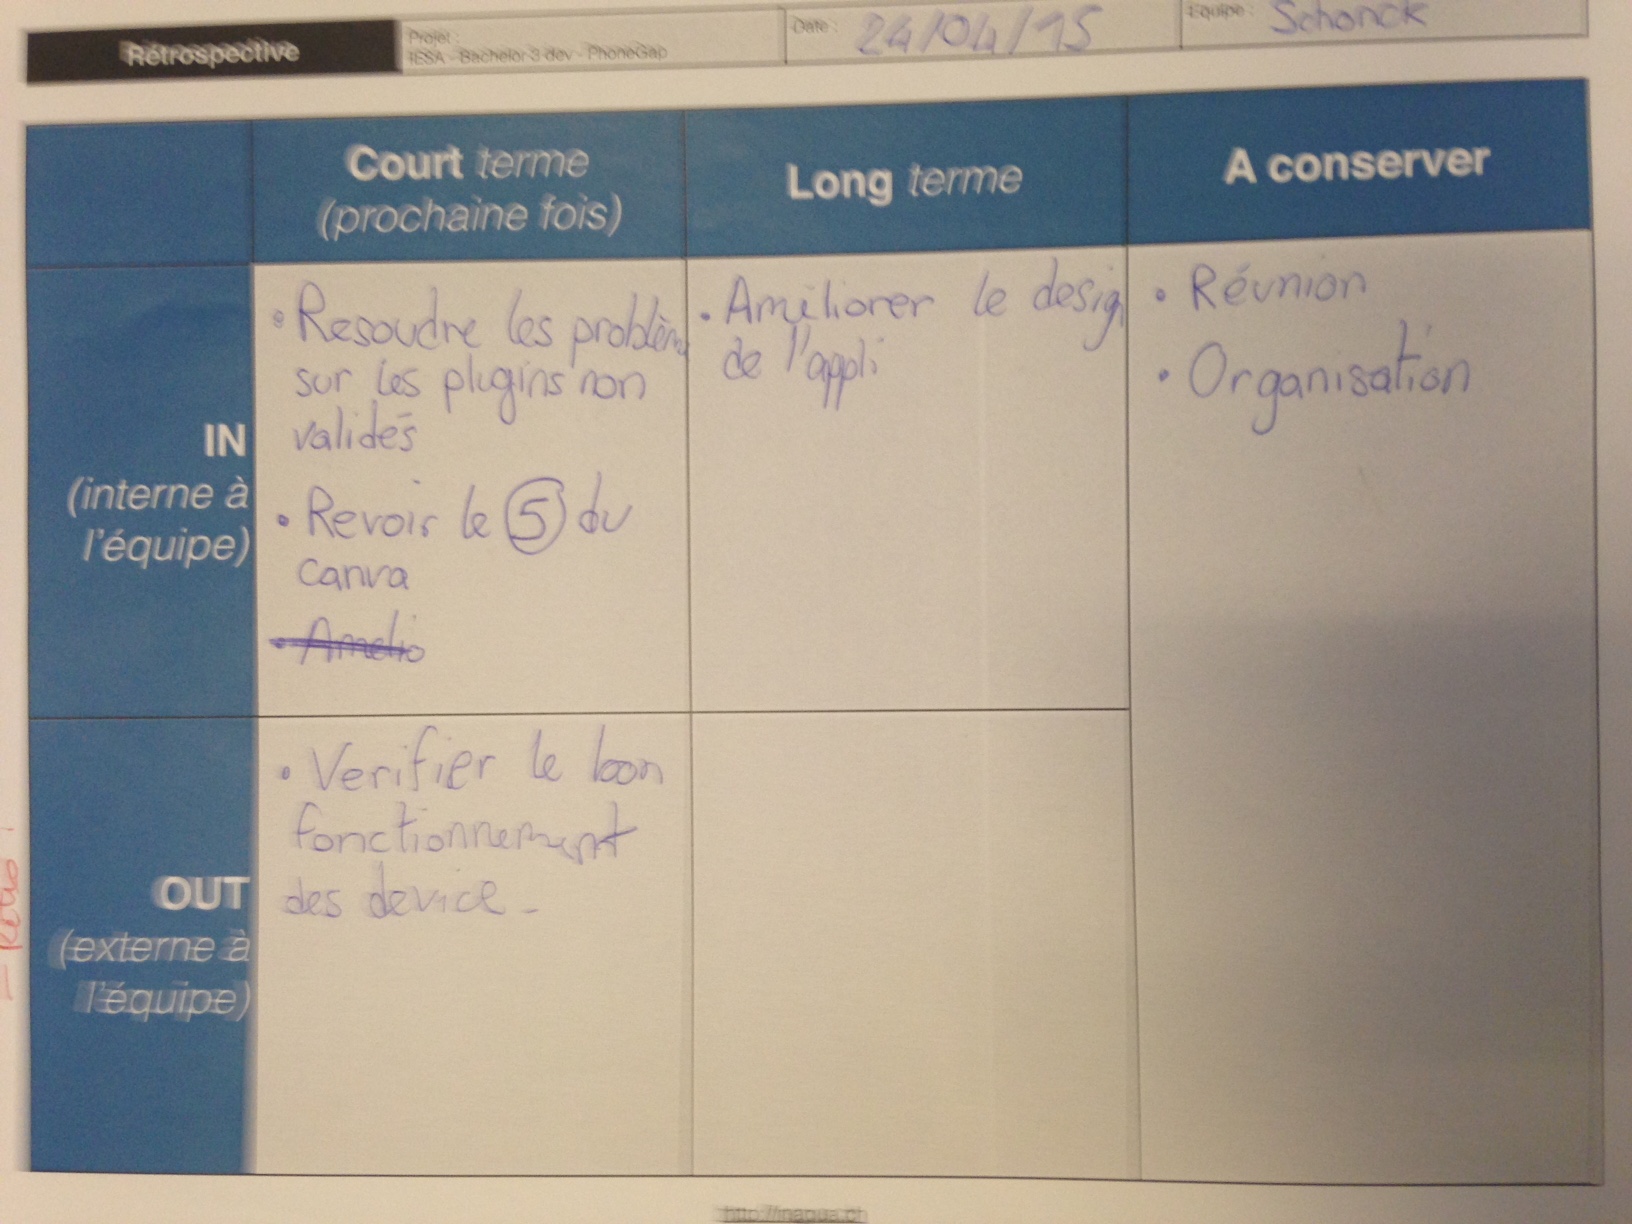 Rétrospective
Projet :
IESA - Bachelor 3 dev - PhoneGap
Date :
24/04/15
Equipe :
Schonck
Court terme
(prochaine fois)
Long terme
A conserver
IN
(interne à
l'équipe)
• Resoudre les problèm
sur les plugins non
validés
• Revoir le 5 du
canva
• Amelio
• Améliorer le design
de l'appli
• Réunion
• Organisation
OUT
(externe à
l'équipe)
• Verifier le bon
fonctionnement
des device.